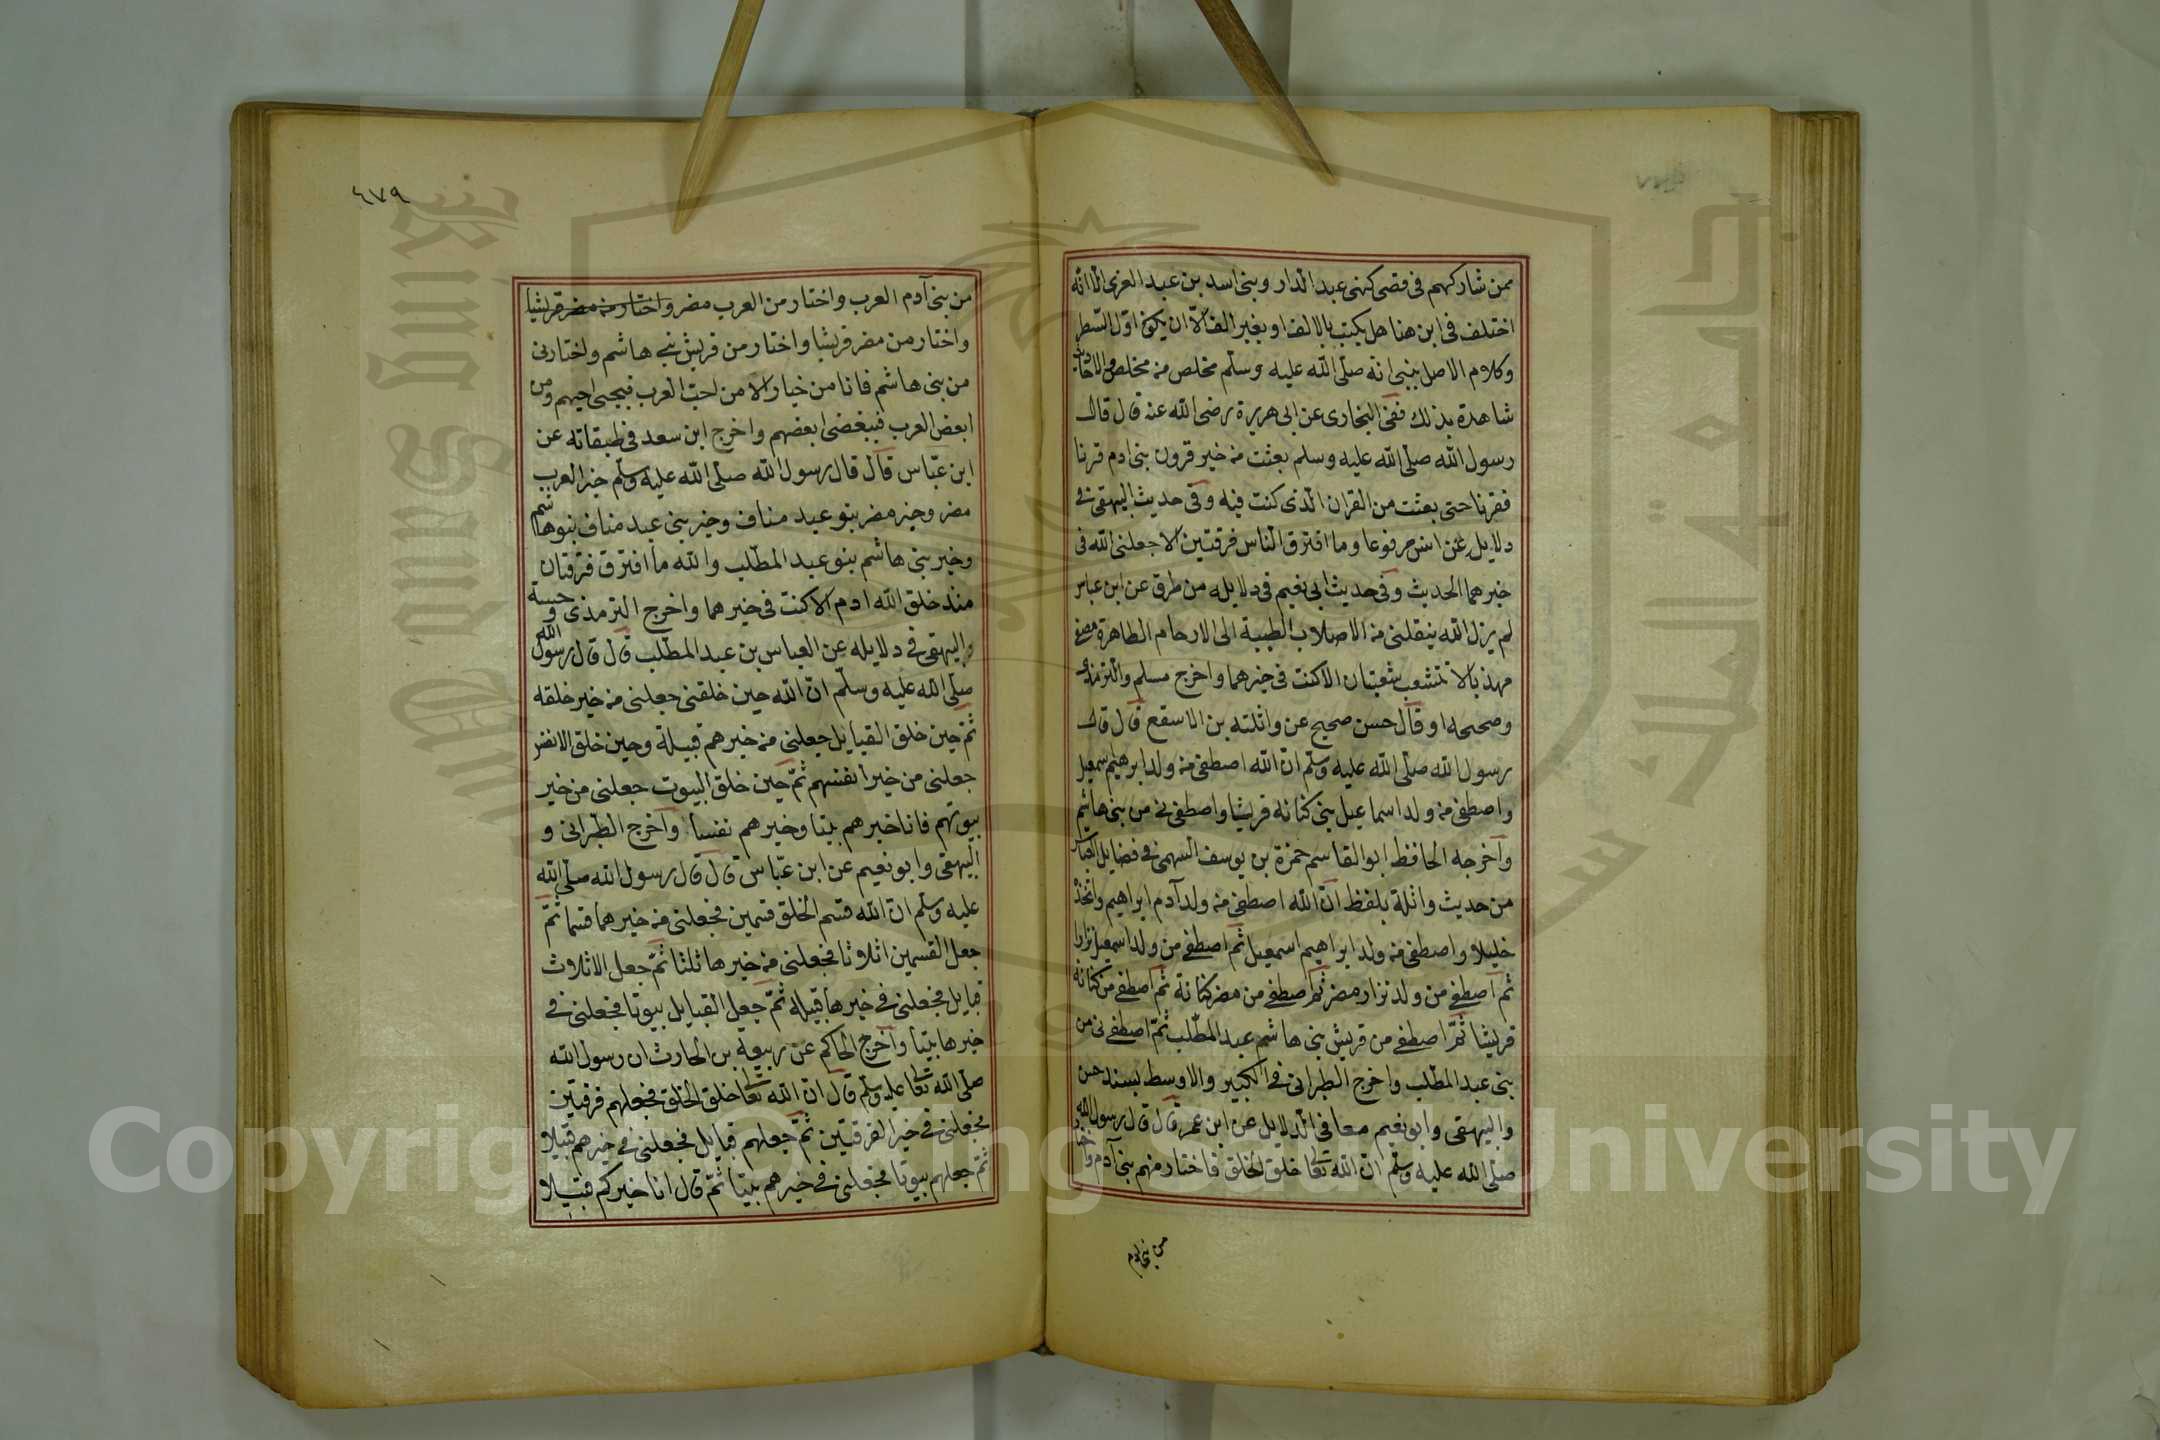 ممن شاركهم فى قصى كبنى عبد الدار وبنى اسد بن عبد العزى الا انه
اختلف فى ابن هنا هل يكتب بالالف او بغير الف الا ان يكون اول السطر
وكلام الاصل ينبى انه صلى الله عليه وسلم مخلص من مخلص والاحاديث
شاهدة بذلك ففى البخارى عن ابى هريرة رضى الله عنه قال قال
رسول الله صلى الله عليه وسلم بعثت من خير قرون بنى ادم قرنا
فقرنا حتى بعثت من القران الذى كنت فيه وفى حديث البيهقى فى
دلايل عن انس مرفوعا وما افترق الناس فرقتين الا جعلنى الله فى
خيرهما الحديث وفى حديث ابى نعيم فى دلايله من طرق عن ابن عباس
لم يزل الله ينقلنى من الاصلاب الطيبة الى الارحام الطاهرة مصفى
مهذبا لا تتشعب شعبتان الا كنت فى خيرهما واخرج مسلم والترمذى
وصححه او قال حسن صحيح عن واثلته بن الاسقع قال قال
رسول الله صلى الله عليه وسلم ان الله اصطفى من ولد ابرهيم سمعيل
واصطفى من ولد اسماعيل بنى كنانه قريشا واصطفى نى من بنى هاشم
واخرجه الحافظ ابو القاسم حمزة بن يوسف السهمى فى فضايل العباس
من حديث واثلة بلفظ ان الله اصطفى من ولد آدم ابراهيم واتخذه
خليلا واصطفى من ولد ابراهيم اسمعيل ثم اصطفى من ولد اسمعيل نزارا
ثم اصطفى من ولد نزار مضر ثم اصطفى من مضر كنانة ثم اصطفى من كنانه
قريشا ثم اصطفى من قريش بنى هاشم عبد المطلب ثم اصطفى نى من
بنى عبد المطلب واخرج الطبرانى فى الكبير والاوسط بسند حسن
والبيهقى وابو نعيم معا فى الدلايل عن ابن عمر قال قال رسول الله
صلى الله عليه وسلم ان الله تعا خلق الخلق فاختار منهم بنى آدم واختار
من بنى ادم
٤٧٩
من بنى آدم العرب واختار من العرب مضر واختار من مضر قريشيا
واختار من مضر قريشيا واختار من قريش بنى هاشم واختارنى
من بنى هاشم فانا من خيار الا من احب العرب فبحبى احبهم ومن
ابغض العرب فببغضى ابغضهم واخرج ابن سعد فى طبقاته عن
ابن عباس قال قال رسول الله صلى الله عليه وسلم خير العرب
مضر وخير مضر بنو عبد مناف وخير بنى عبد مناف بنو هاشم
وخير بنى هاشم بنو عبد المطلب والله ما افترق فرقتان
منذ خلق الله ادم الا كنت فى خيرهما واخرج الترمذى وحسنه
والبيهقى فى دلايله عن العباس بن عبد المطلب قال قال رسول الله
صلى الله عليه وسلم ان الله حين خلقنى جعلنى من خير خلقه
ثم حين خلق القبايل جعلنى من خيرهم قبيلة وحين خلق الانفس
جعلنى من خير انفسهم ثم حين خلق البيوت جعلنى من خير
بيوتهم فانا خيرهم بيتا وخيرهم نفسا واخرج الطبرانى و
البيهقى وابو نعيم عن ابن عباس قال قال رسول الله صلى الله
عليه وسلم ان الله قسم الخلق قسمين فجعلنى من خيرهما قسما ثم
جعل القسمين اثلاثا فجعلنى من خيرها ثلثا ثم جعل الاثلاث
قبايل فجعلنى فى خيرها قبيلة ثم جعل القبايل بيوتا فجعلنى فى
خيرها بيتا واخرج الحاكم عن ربيعة بن الحارث ان رسول الله
صلى الله تعا عليه وسلم قال ان الله تعا خلق الخلق فجعلهم فرقتين
فجعلنى فى خير الفرقتين ثم جعلهم قبايل فجعلنى فى خيرهم قبيلا
ثم جعلهم بيوتا فجعلنى فى خيرهم بيتا ثم قال انا خيركم قبيلا
Copyright © King Saud University
King Saud University
جامعة الملك سعود